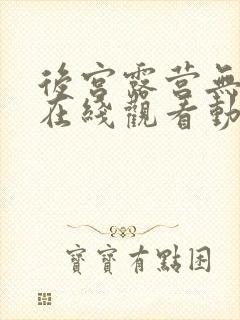 後宮露營無
在綫觀看動
寶寶有點困